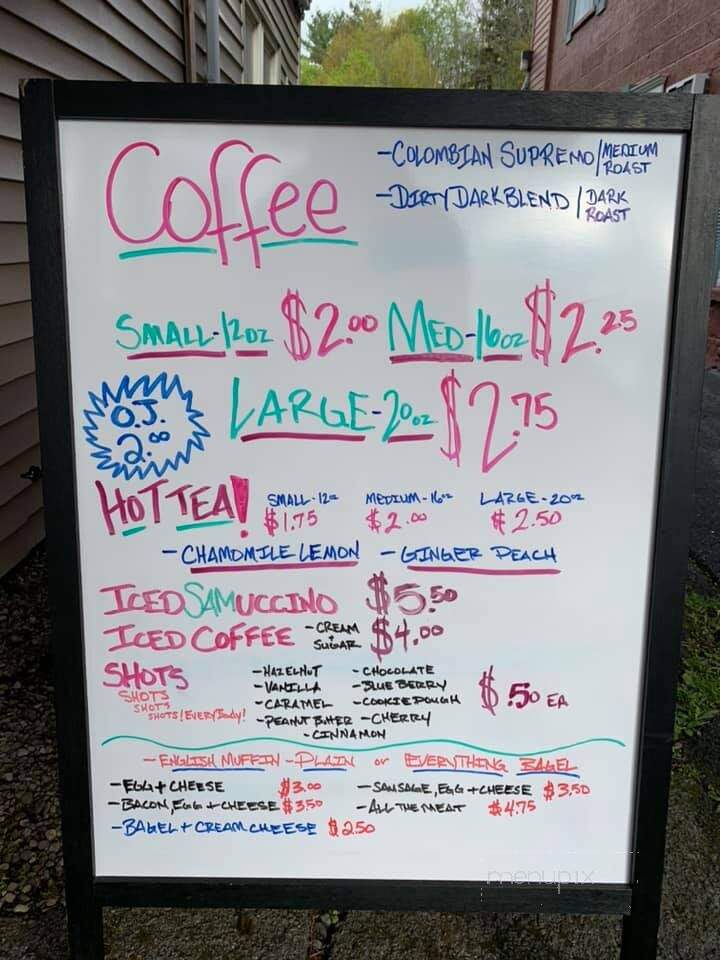 Coffee
-COLOMBIAN SUPREMO/MEDIUM ROAST
-DIRTY DARK BLEND/DARK ROAST
SMALL-12oz $2.00 MED-16oz $2.25
O.J. 2.00
LARGE-20oz $2.75
HOT TEA!
SMALL-12oz MEDIUM-16oz LARGE-20oz
$1.75 $2.00 $2.50
-CHAMOMILE LEMON -GINGER PEACH
ICED SAMUCCINO $5.50
ICED COFFEE -CREAM + SUGAR $4.00
SHOTS
SHOTS
SHOTS
SHOTS! EVERYBODY!
-HAZELNUT -CHOCOLATE
-VANILLA -BLUEBERRY
-CARAMEL -COOKIE DOUGH
-PEANUT BUTTER -CHERRY
-CINNAMON
$.50 EA
-ENGLISH MUFFIN -PLAIN or EVERYTHING BAGEL
-EGG + CHEESE $3.00 -SAUSAGE, EGG + CHEESE $3.50
-BACON, EGG + CHEESE $3.50 -ALL THE MEAT $4.75
-BAGEL + CREAM CHEESE $2.50
menupix